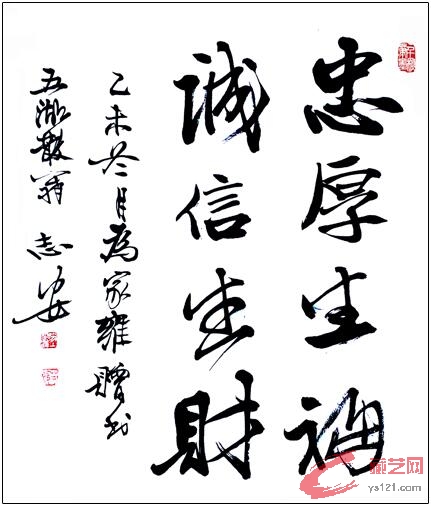 忠厚生福
誠信生財
乙未冬月為家雍贈書
五湖散翁 志安
藏艺网
ys121.com